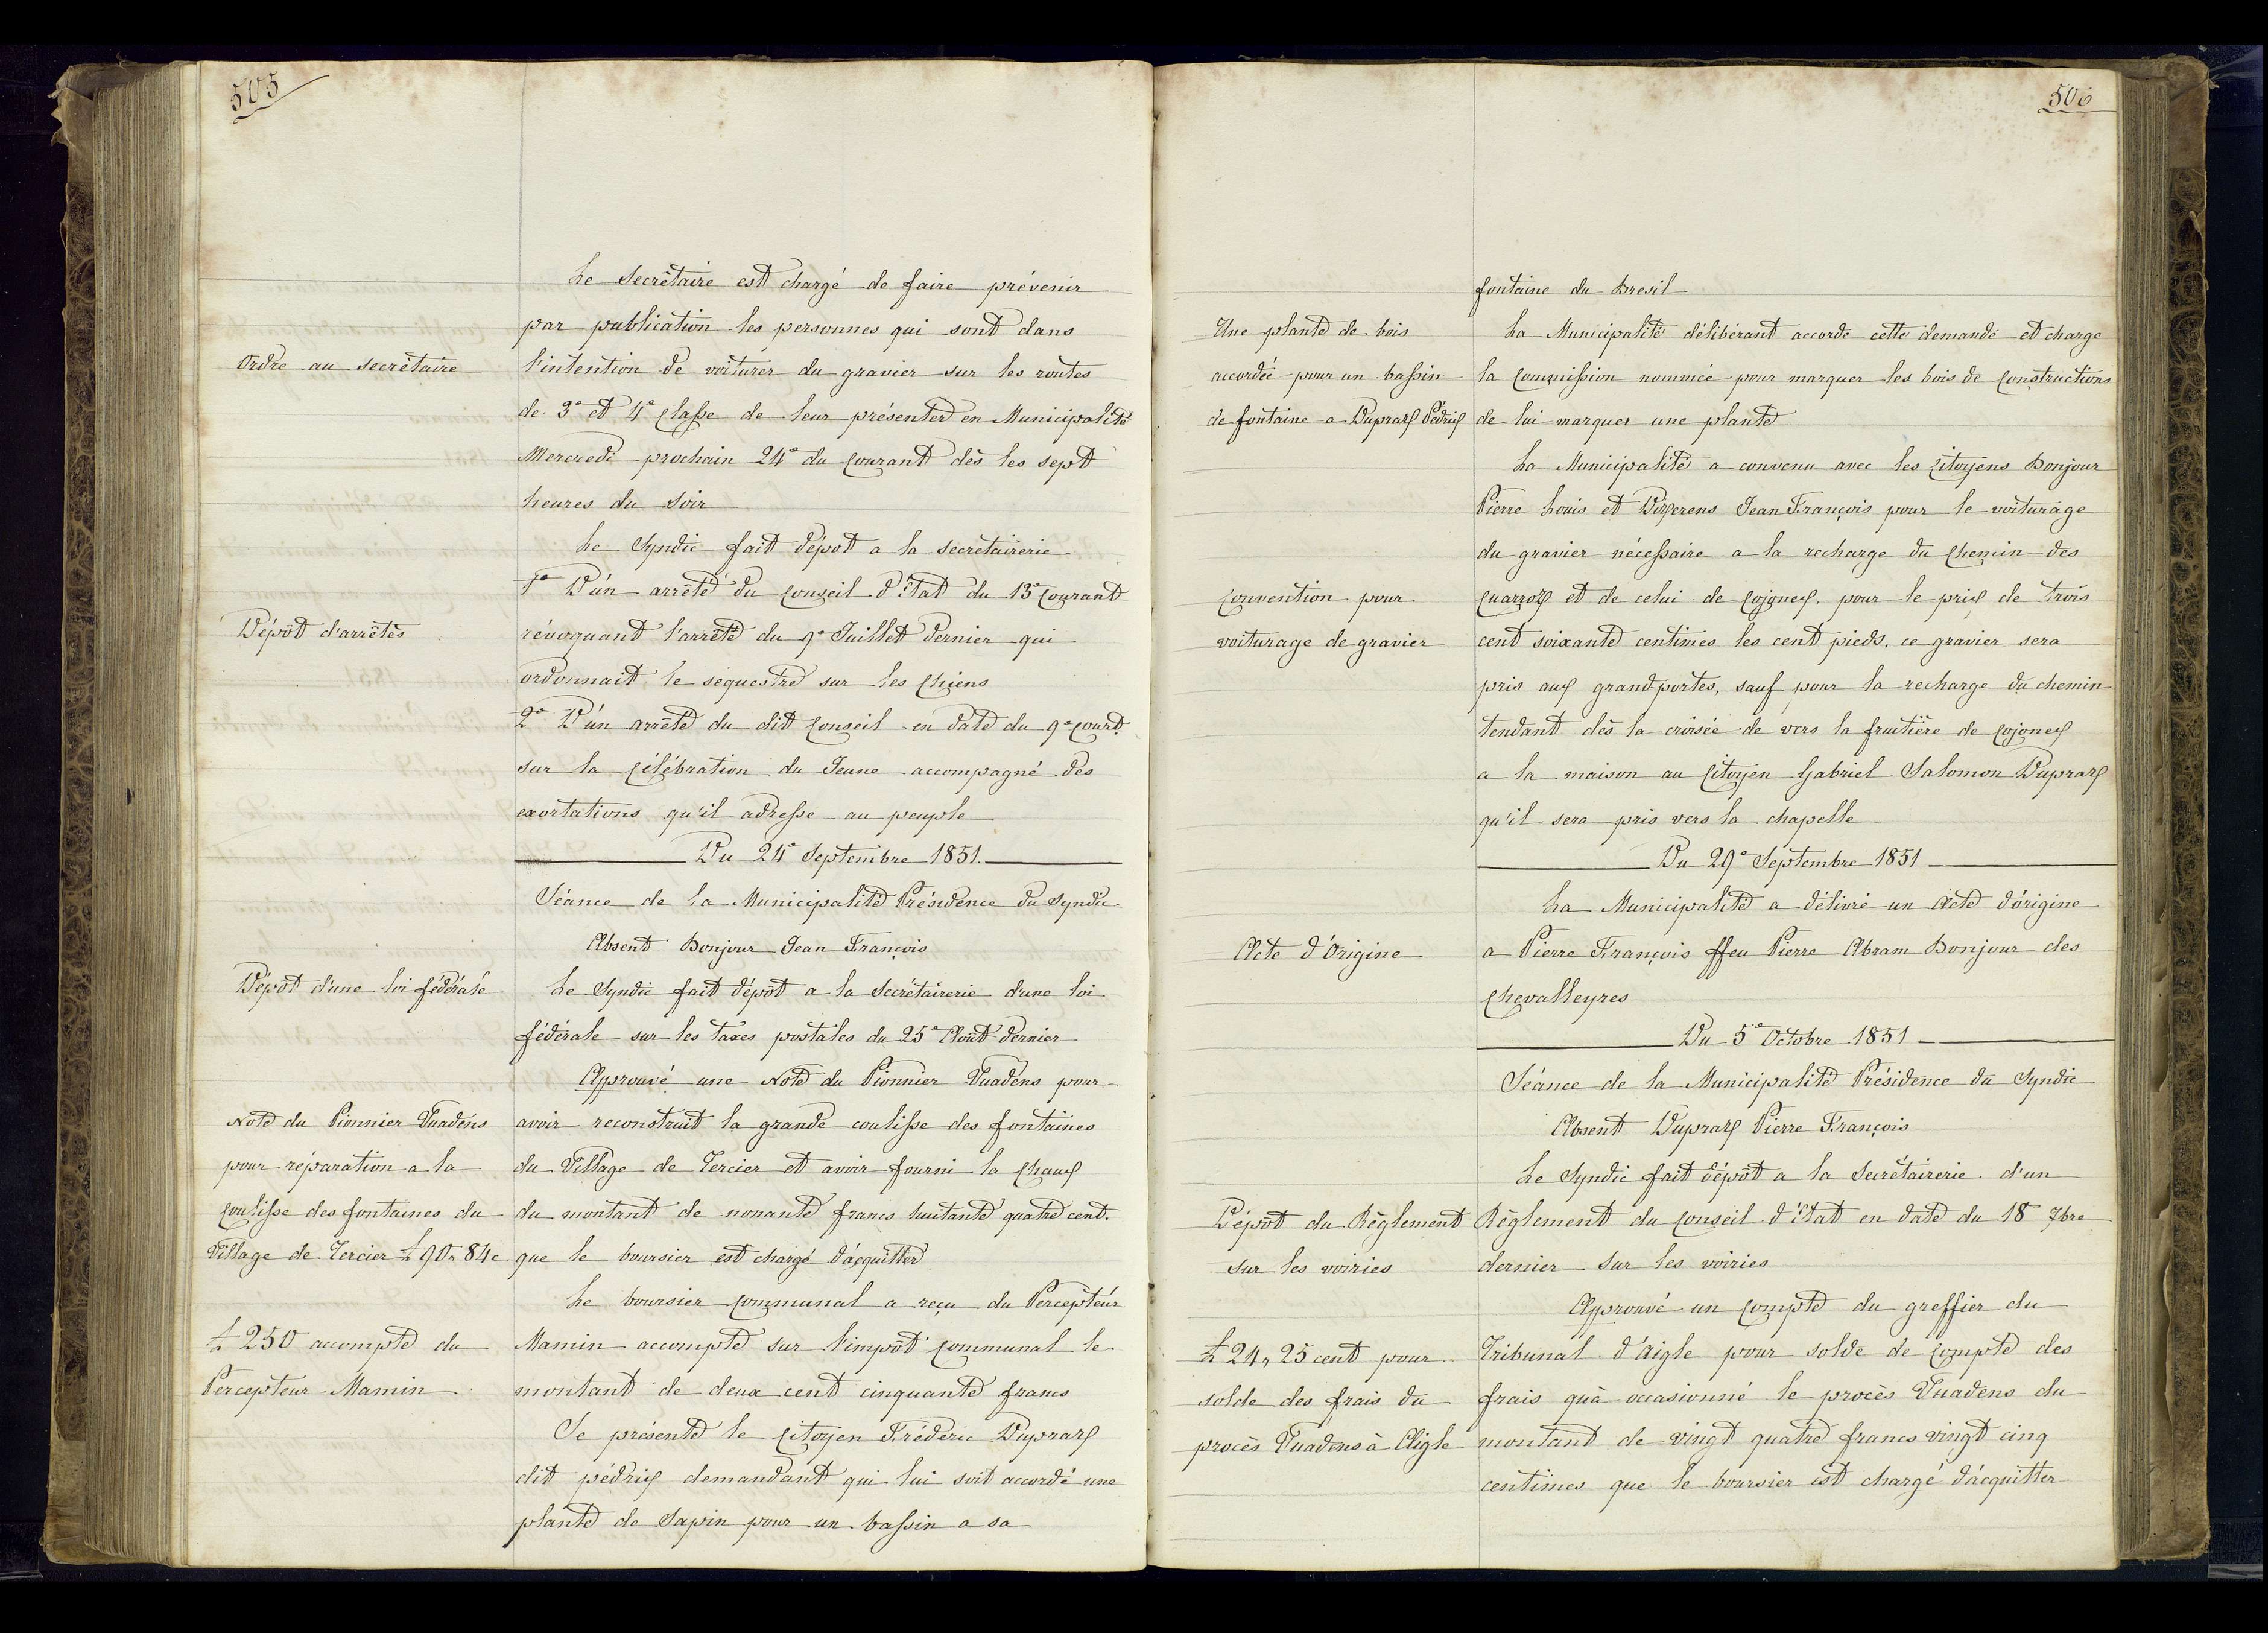 505
Le Secrétaire est chargé de faire prévenir
par publication les personnes qui sont dans
Ordre au secrétaire
l'intention de voiturer du gravier sur les routes
de 3e et 4e Classe de leur présenter en Municipalité
Mercredi prochain 24e du Courant dès les sept
heures du Soir
Le Syndic fait dépot a la secretairerie
1e D'un arrêté du Conseil d'Etat du 13e Courant
Dépôt d'arrêtés
révoquant l'arrêté du 9e Juillet dernier qui
ordonnait le sequestre sur les Chiens
2e D'un arrêté du dit Conseil en date du 9e Court
sur la Célébration du Jeune accompagné des
exortations qu'il adresse au peuple
Du 24e Septembre 1851.
Séance de la Municipalité Présidence du Syndic
Absent Bonjour Jean François
Dépot d'une loi fédérale
Le Syndic fait dépôt a la Secrétairerie d'une loi
fédérale sur les taxes postales du 25e Août dernier
Approuvé une Note du Pionnier Vuadens pour
Note du Pionnier Vuadens
avoir reconstruit la grande coulisse des fontaines
pour réparation a la
du Village de Tercier et avoir fourni la Chaux
Coulisse des fontaines du
du montant de nonante francs huitante quatre cent.
Village de Tercier £ 90 „ 84 c
que le boursier est chargé d'acquitter
Le boursier Communal a reçu du Percepteur
£ 250 accompte du
Mamin accompte sur l'impôt Communal le
Percepteur Mamin
montant de deux cent cinquante francs
Se présente le Citoyen Fréderic Dupraz
dit pédrix demandant qui lui soit accordé une
plante de Sapin pour un bassin a sa
506
fontaine du Bresil
Une plante de bois
La Municipalité délibérant accorde cette demande et charge
accordée pour un bassin
la Commission nommée pour marquer les bois de Constructions
de fontaine a Dupraz Pédrix
de lui marquer une plante
La Municipalité a convenu avec les Citoyens Bonjour
Pierre Louis et Dizerens Jean François pour le voiturage
du gravier nécessaire a la recharge du Chemin des
Convention pour
Quarroz et de celui de Cojonex. pour le prix de trois
voiturage de gravier
cent soixante centimes les cent pieds. ce gravier sera
pris aux grand-portes, sauf pour la recharge du chemin
tendant dès la croisée de vers la fruitière de Cojonex
a la maison au Citoyen Gabriel Salomon Dupraz
qu'il sera pris vers la chapelle
Du 29e Septembre 1851
La Municipalité a délivré un Acte d'origine
Acte d'Origine
a Pierre François ffeu Pierre Abram Bonjour des
Chevalleyres
Du 5e Octobre 1851
Séance de la Municipalité Présidence du Syndic
Absent Dupraz Pierre François
Le Syndic fait dépôt a la Secrétairerie d'un
Dépôt du Règlement
Règlement du Conseil d'Etat en date du 18 7bre
sur les voiries
dernier sur les voiries
Approuvé un Compte du greffier du
£ 24 „ 25 cent pour
Tribunal d'Aigle pour solde de Compte des
solde des frais du
frais qu'a occasionné le procès Vuadens du
procès Vuadens à Aigle
montant de vingt quatre francs vingt cinq
centimes que le boursier est chargé d'acquitter